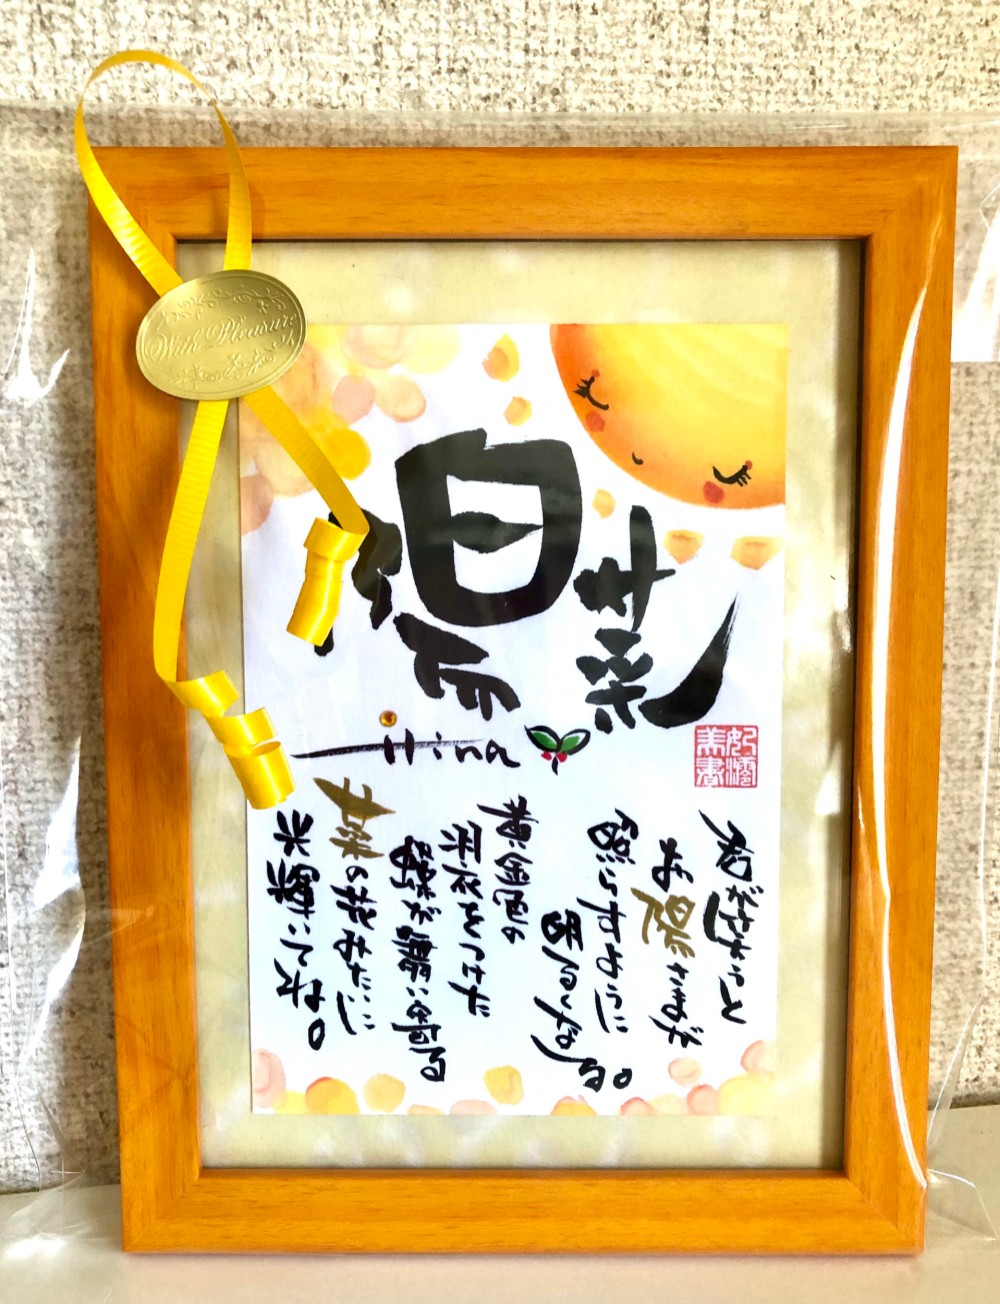 With Pleasure
陽菜
Hina
君が
お陽さまが
照らすように
明るくなる。
黄金色の
衣をつけた
蝶が舞い
菜の花みたいに
光輝いてね。